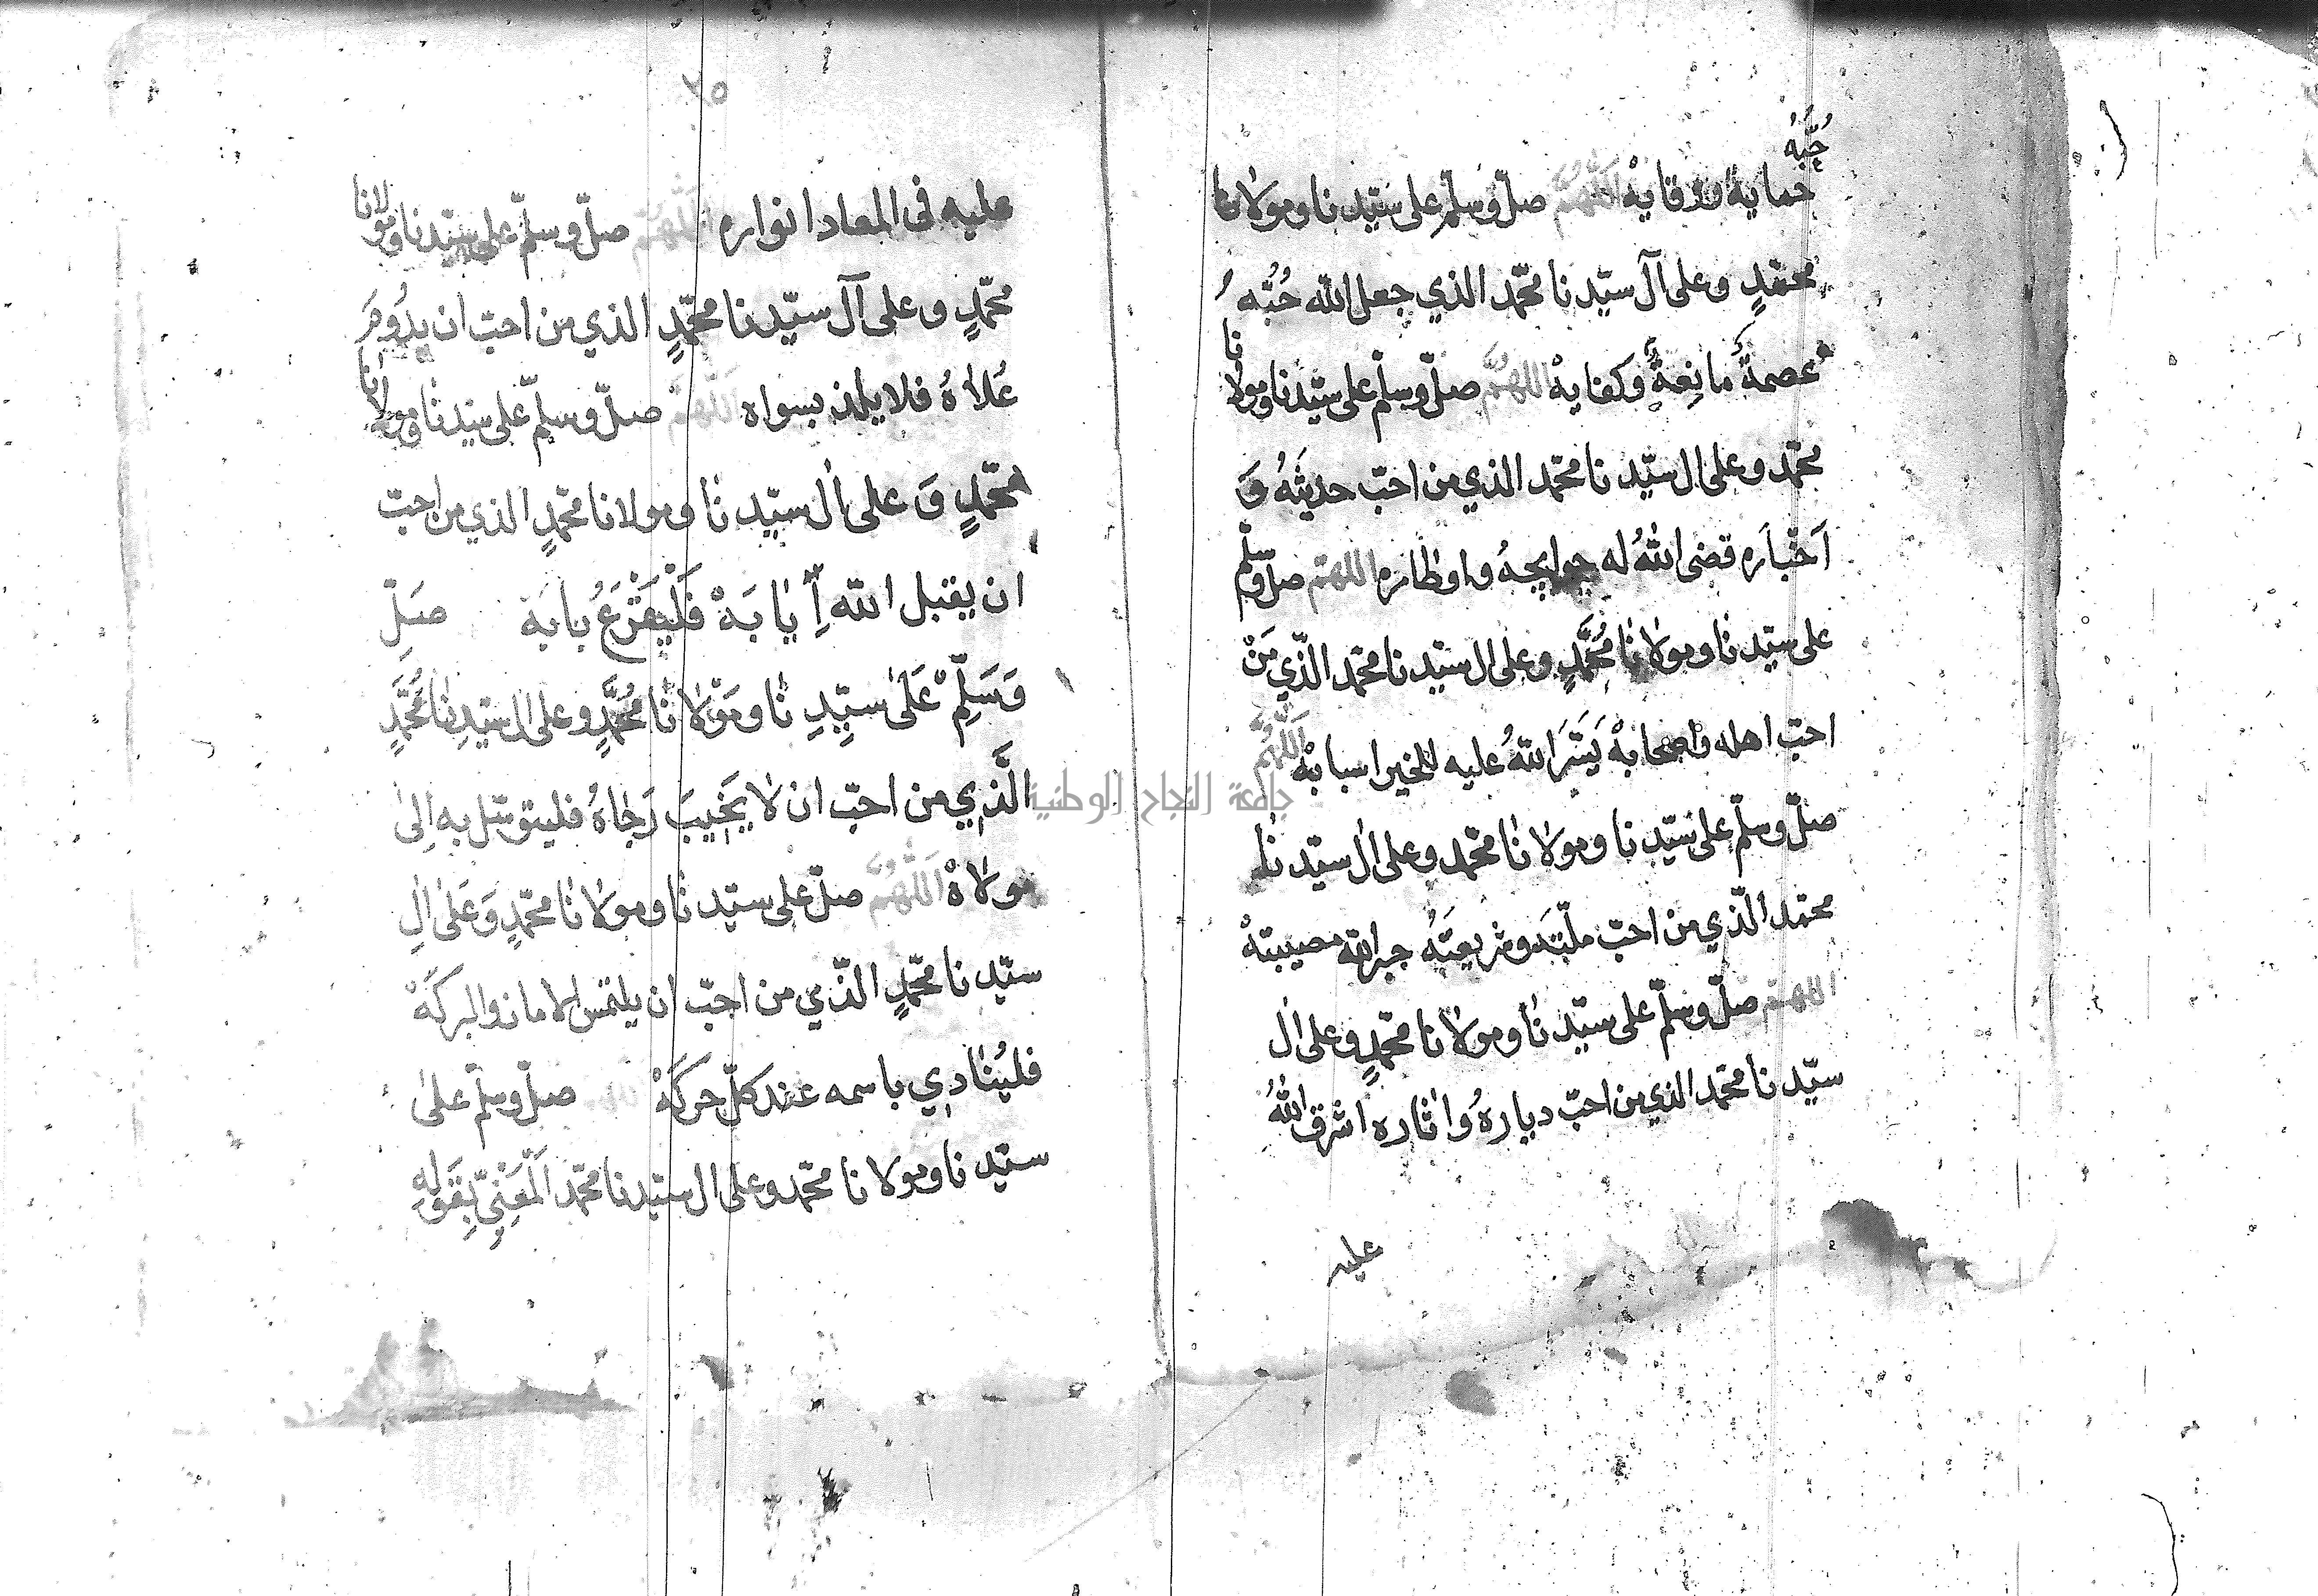 حُبَّهُ
حماية ووقاية اَللّٰهُمَّ صلّ وسلّم على سيّدنا ومولانا
محمّدٍ وعلى آل سيّدنا محمّد الذي جعل الله حُبّه
عصمةً مانِعةً وكفاية اللهُمَّ صلّ وسلّم على سيّدنا ومولانا
محمّد وعلى ال سيّدنا محمّد الذي من احبّ حديثَهُ وَ
اَخْبَاره قضى اللهُ له حوايجهُ واوطاره اللهمّ صلّ وسلّم
على سيّدنا ومولانا مُحَمَّدٍ وعلى ال سيّدنا محمّد الّذي مَنْ
احبّ اهله واصحابهْ يَسَّرَ اللهُ عليه للخير اسبابهْ اَللّٰهُمَّ
صلّ وسلّم على سيّدنا ومولانا محمّد وعلى ال سيّدنا
محمّد الّذي من احبّ ملّتَه وشريعتَهُ جبر الله مصيبتهْ
اللهمّ صلّ وسلّم على سيّدنا ومولانا محمّدٍ وعلى ال
سيّدنا محمّد الذي من احبّ ديارهُ واثاره اشرق اللهُ
عليه
٣٥
عليه في المعاد انواره اَللّٰهُمَّ صلّ وسلّم على سيّدنا ومولانا
محمّدٍ وعلى آل سيّدنا محمّدٍ الذي من احبّ ان يدُومَ
عُلاهُ فلا يلذ بسواه اَللّٰهُمَّ صلّ وسلّم على سيّدنا ومولانا
محمّدٍ وَعلى ال سيّدنا ومولانا محمّدٍ الذي من احبّ
ان يقبل الله اِيابَهْ فَلْيَقْرَعُ بابَه صَلِّ
وَسَلِّمْ عَلَى سيّدِنا ومَوْلانا مُحَمَّدٍ وعلى ال سيّدِنا مُحَمَّدٍ
الَّذِي من احبّ ان لا يَخِيبَ رَجاهُ فليتوسّل به اِلى
مولاهْ اَللّٰهُمَّ صلّ على سيّدنا ومولانا محمّدٍ وَعَلى الِ
سيّدنا محمّدٍ الّذي من احبّ ان يلتمس الامان والبركَهْ
فليُنادي باسمه عند كلّ حركَهْ صلّ وسلّم على
سيّدنا ومولانا محمّد وعلى ال سيّدنا محمّد اَلْمَعْنِيِّ بِقَوله
جامعة النجاح الوطنية